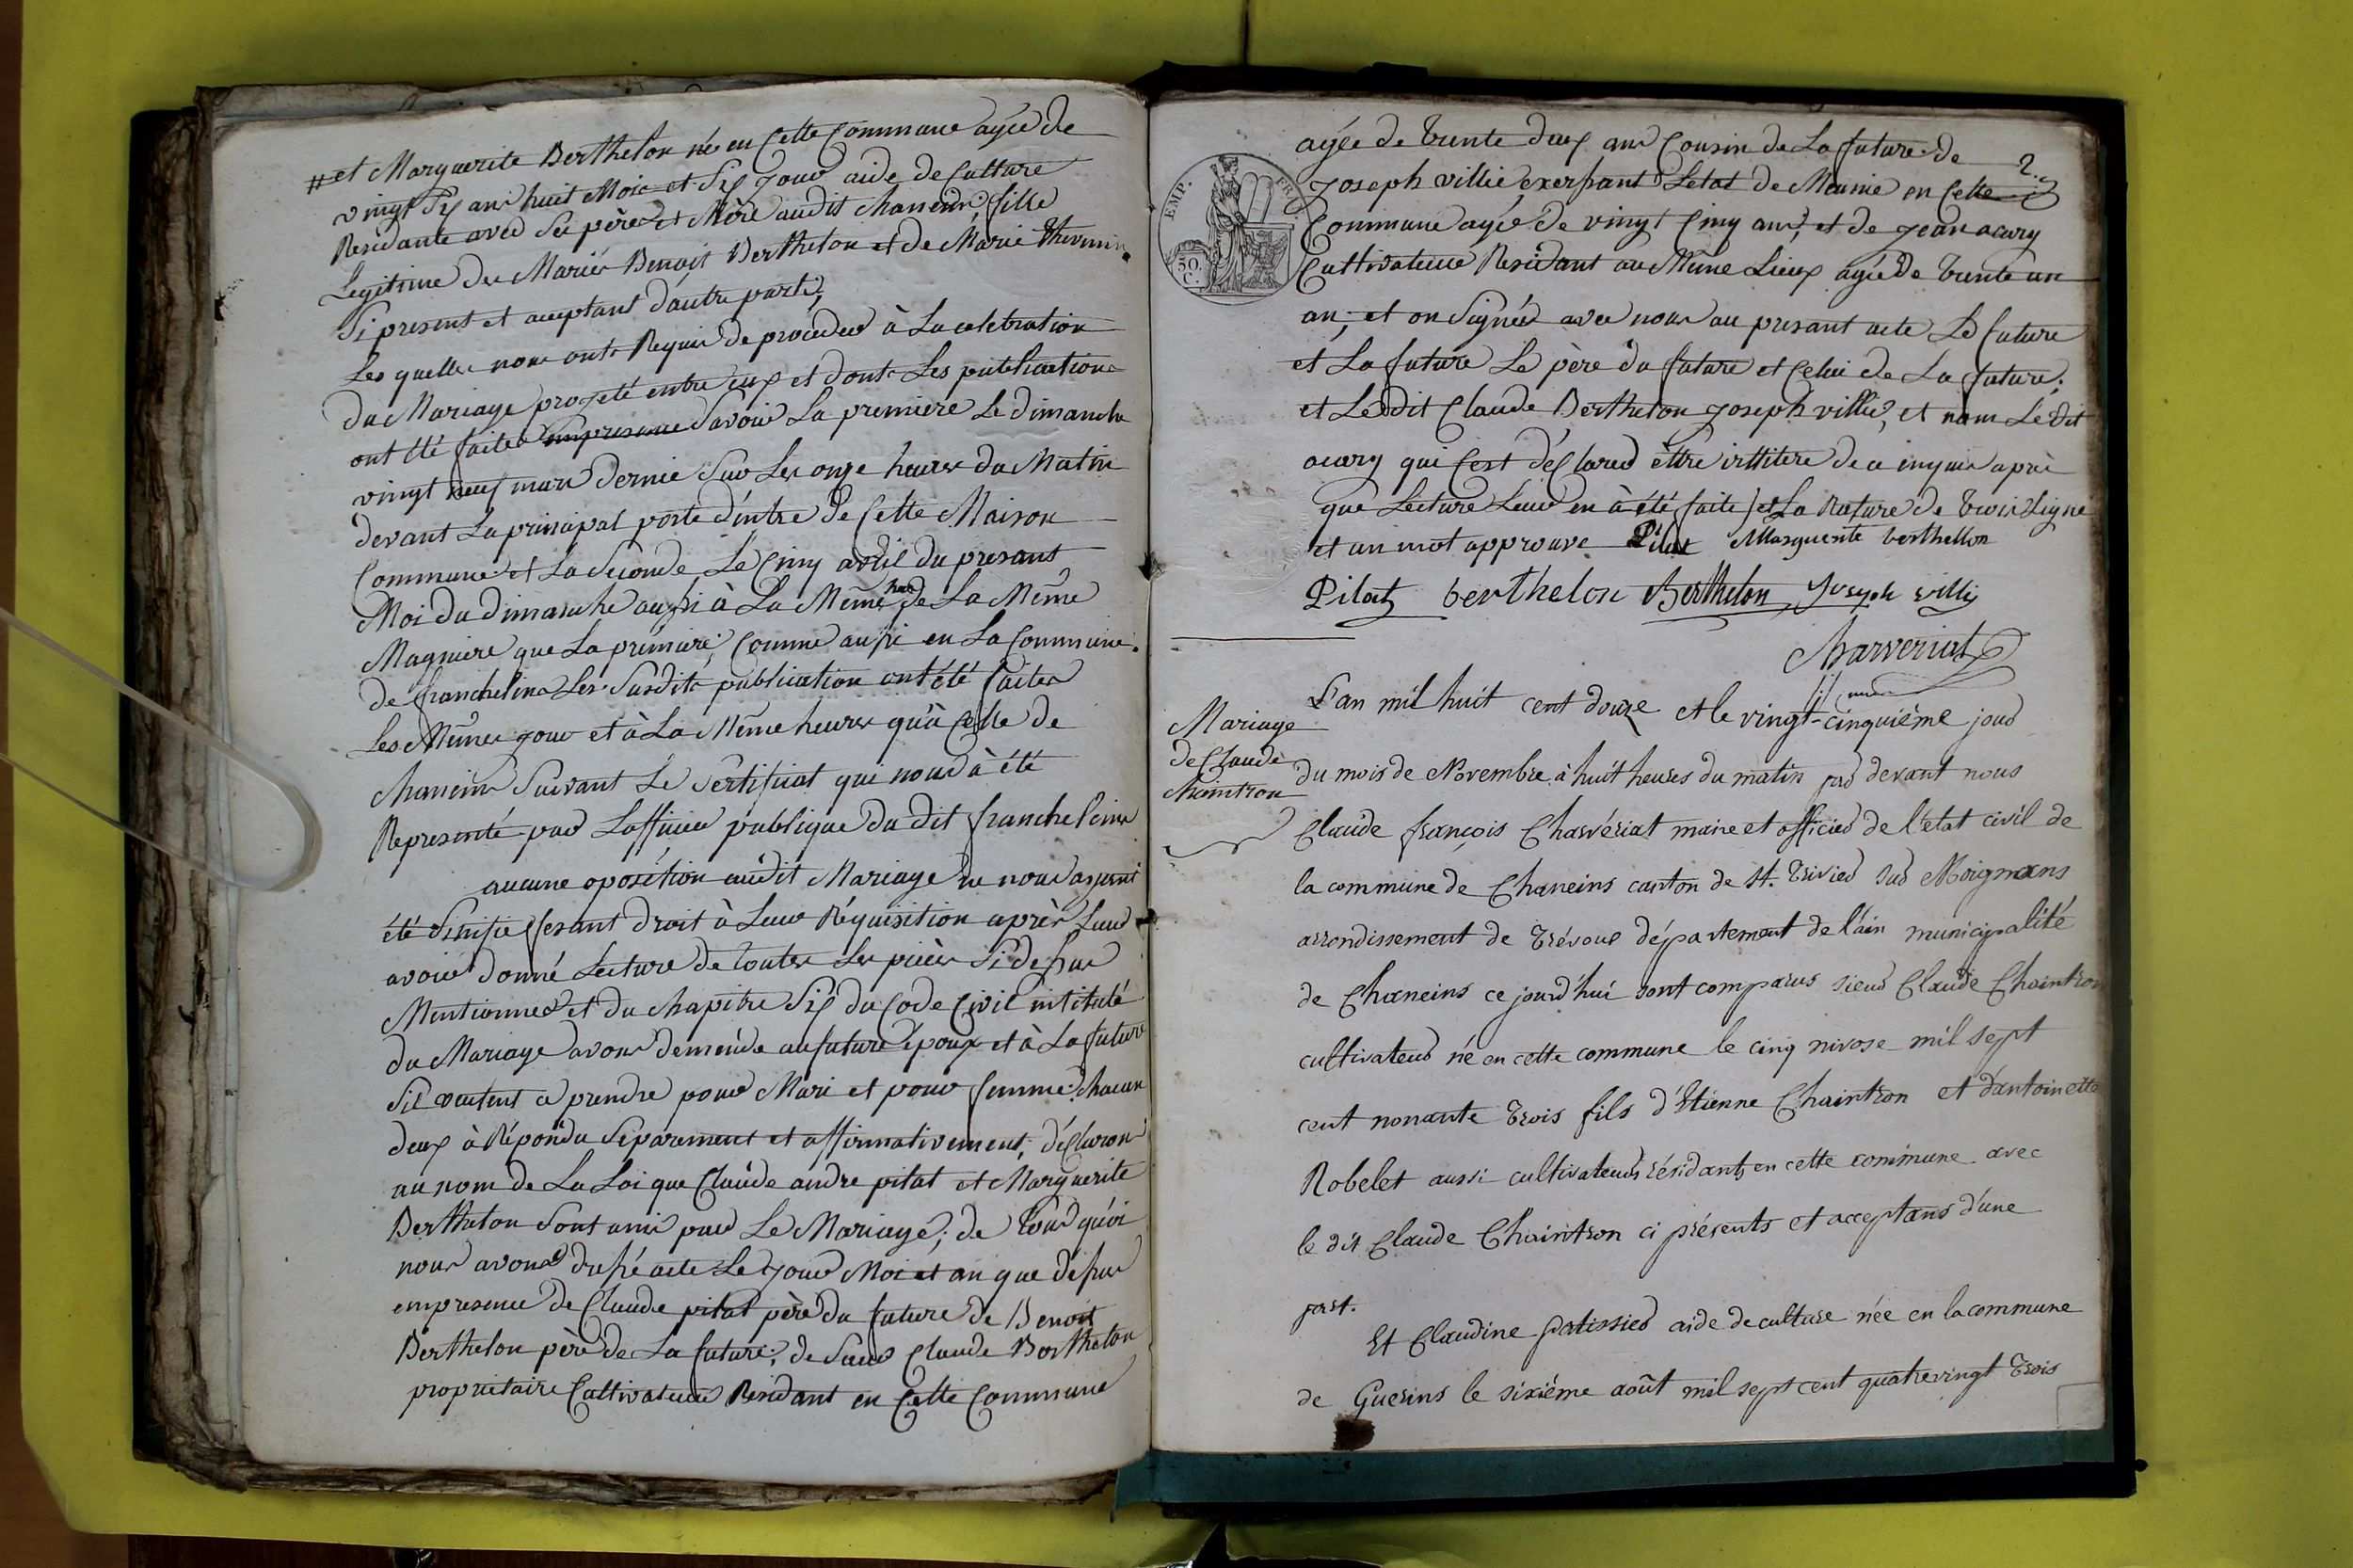 et Marguerite Berthelon né en Cette Commune agée de
vingt Six ans huit Mois et Six Jour aide de Culture
Residante aved Ses père et Mère audit chaneins fille
Legitime des Mariés Benoit Berthelon et de Marie Thevenin
Si present et aceptant d'autre part,
Les quelles nous onts Requis de proceder à La celebration
du Mariage projeté entre eux et dont Les publications
ont été faites Savoir La premiere Le dimanche
vingt neuf mars dernie Sur Les onze heures du Matin
devant La principal porte d'entre de Cette Maison
Commune et La Seconde Le Cinq avril du presant
Moi du dimanche aussi à La Même de La Même
Magniere que La première, Comme aussi en La Commune
de franchelins Les Susdits publication ont été faites
Les Mêmes jour et à La Même heures qu'à Celle de
chaneins Suivant Le Sertificat qui nous à été
Representé par Lofficier publique du dit francheleins
aucune oposition audit Mariage ne nous ayant
été Sinifie fesant droit à Leur Réquisition après Leur
avoir donné Lecture de toutes Les pièces Si desus
Mentionnes et du chapitre Six du Code Civil intitulé
du Mariage avons demende au future époux et à La future
Sil veulent ce prendre pour Mari et pour femme: chacun
deux à Répondu Séparement et affirmativement, déclarons
au nom de La Loi que Claude andre pilat et Marguerite
Berthelon Sont unis par Le Mariage; de tous qu'oi
nous avons dressé acte Le jour Moi et an que desus
empresence de Claude pilat père du future de Benoit
Berthelon père de La future, de Sieur Claude Berthelon
proprietaire Cultivateur Residant en Cette Commune
2.
EMP. FR.
50 C.
agée de trente deux ans Cousin de La future de
Joseph villié exersant Létat de Meunie en Cette
Commune agée de vingt Cinq ans, et de Jean acary
Cultivateur Residant au Même Lieux agée de trente un
an, et on Signés avec nous au presant acte Le future
et La future Le père du future et Celui de La future,
et Ledit Claude Berthelon Joseph villié, et nom Ledit
acary qui C'est déclared ettre illitere de ce enquis après
que Lecture Leur en à été faite et La Rature de trois Ligne
et un mot approuve Pilat Marguerite berthellon
Pilat berthelon Berthelon Joseph villié
Charveriat
maire
Mariage
de Claude
Chaintron
L'an mil huit cent douze et le vingt-cinquième jour
du mois de Novembre à huit heures du matin par devant nous
Claude françois Charvériat maire et officier de l'etat civil de
la commune de Chaneins canton de St. Trivier sur Moignans
arrondissement de Trévoux département de l'ain municipalité
de Chaneins ce jourd'hui sont comparus sieur Claude Chaintron
cultivateur né en cette commune le cinq nivose mil sept
cent nonante trois fils d'Etienne Chaintron et d'antoinette
Robelet aussi cultivateurs résidants en cette commune avec
le dit Claude Chaintron ci présents et acceptans d'une
part.
Et Claudine patissier aide de culture née en la commune
de Guerins le sixième août mil sept cent quatrevingt trois